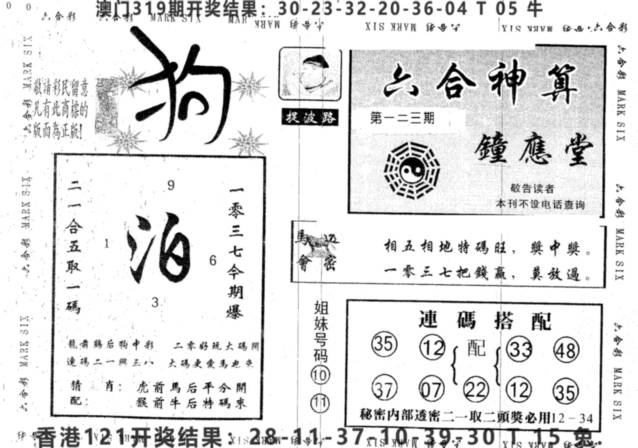 澳门319期开奖结果：30-23-32-20-36-04 T 05 牛
六合彩 MARK SIX
敬请彩民留意
凡有此商标的
版面為正版!
狗
捉波路
六合神算
第一二三期
鐘應堂
敬告读者
本刊不设电话查询
二一合五取一碼
9
1
泊
6
3
一零三七今期爆
龍前鷄后狗中彩 二零好玩大碼開
連碼二一與三八 大碼更愛馬迎兔
猜肖：虎前馬后平分開
配：猴前牛后特碼來
馬會
相五相地特碼旺，獎中獎。
一零三七把錢贏，莫放過。
姐妹号码
10
11
連碼搭配
35 12 配 33 48
37 07 22 12 35
秘密内部透密二一取二頭獎必用12－34
香港121开奖结果：28-11-37-10-39-30